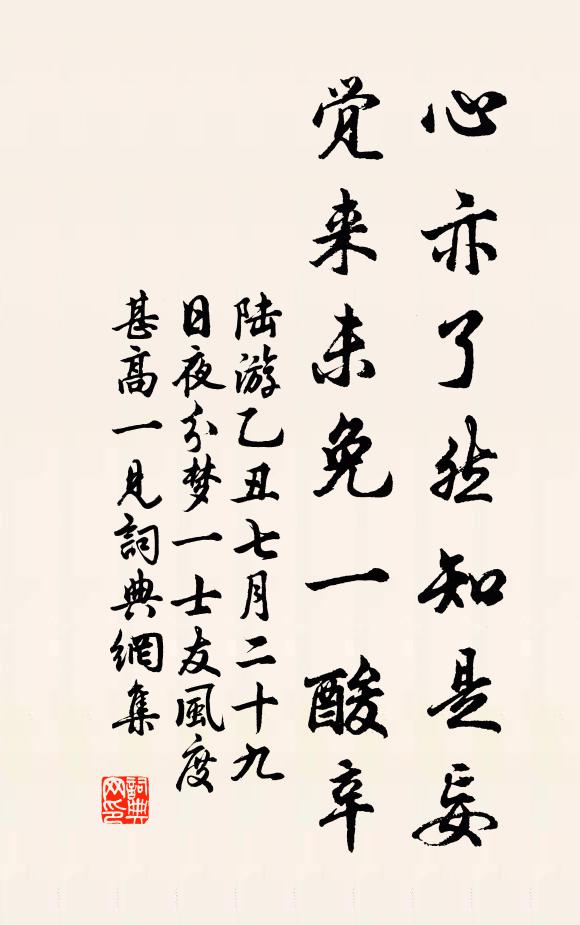 心亦了然知是妄
觉来未免一酸辛
陆游乙丑七月二十九
日夜分梦一士友風度
甚高一见詞典網集
詞典
网印